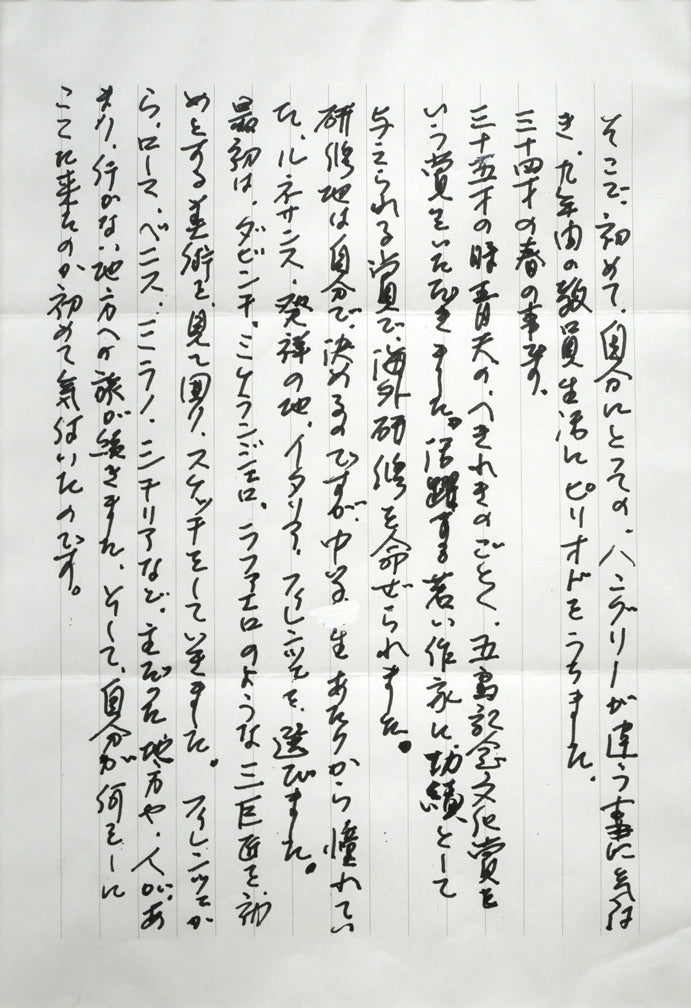 そこで、初めて、自分にとっての、ハングリーが違う事に気付
き、九年間の教員生活にピリオドをうちました。
三十四才の春の事です。
三十五才の時青天の、へきれきのごとく、五島記念文化賞を
いう賞をいただきました。活躍する若い作家に功績として
与えられる賞で、海外研修を命ぜられました。
研修地は自分で、決めるのですが、中学生あたりから憧れてい
た、ルネサンス・発祥の地、イタリア、フィレンツェを、選びました。
最初は、ダビンチ、ミケランジェロ、ラファエロのような三巨匠を、初
めとする美術を、見て回り、スケッチをしていきました。フィレンツェか
ら、ローマ、ベニス、ミラノ、シチリアなど、主だった地方や、人が、あ
まり、行かない地方への旅が続きました、そして、自分が何をしに
ここに来たのか初めて気付いたのです。